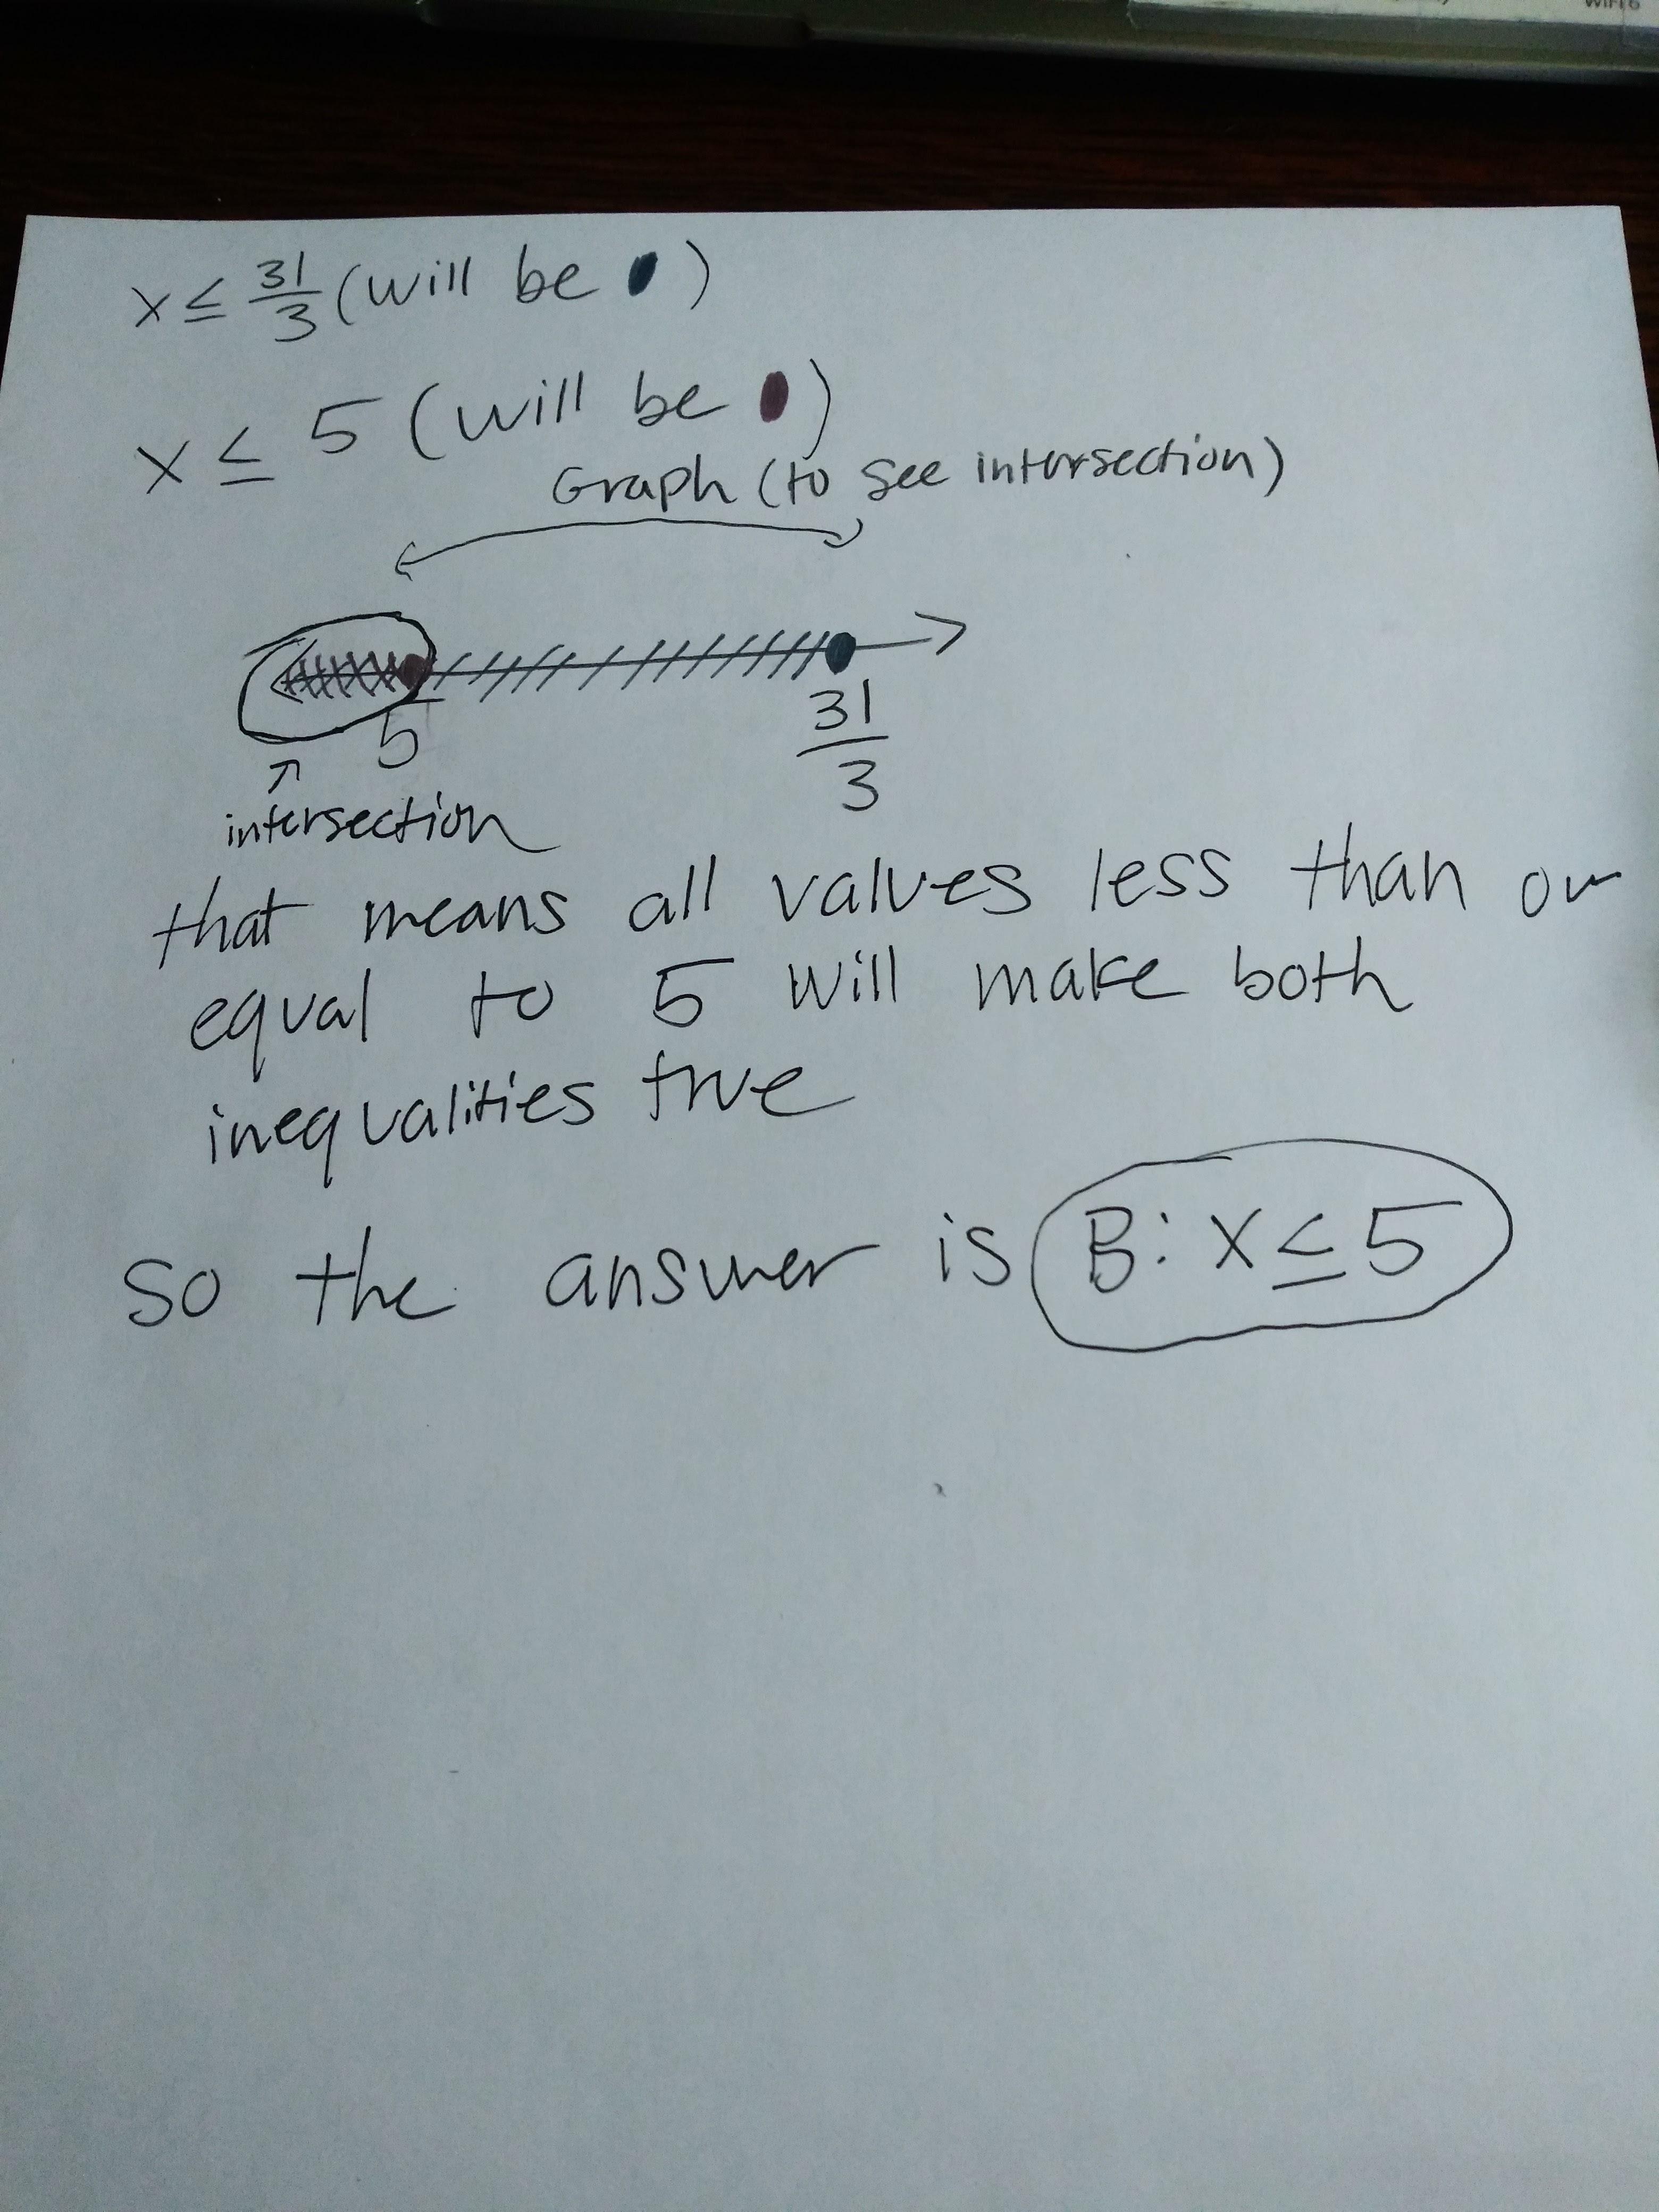 x ≤ 31/3 (will be )
x ≤ 5 (will be )
Graph (to see intersection)
5
31/3
intersection
that means all values less than or
equal to 5 will make both
inequalities true
so the answer is B: x ≤ 5